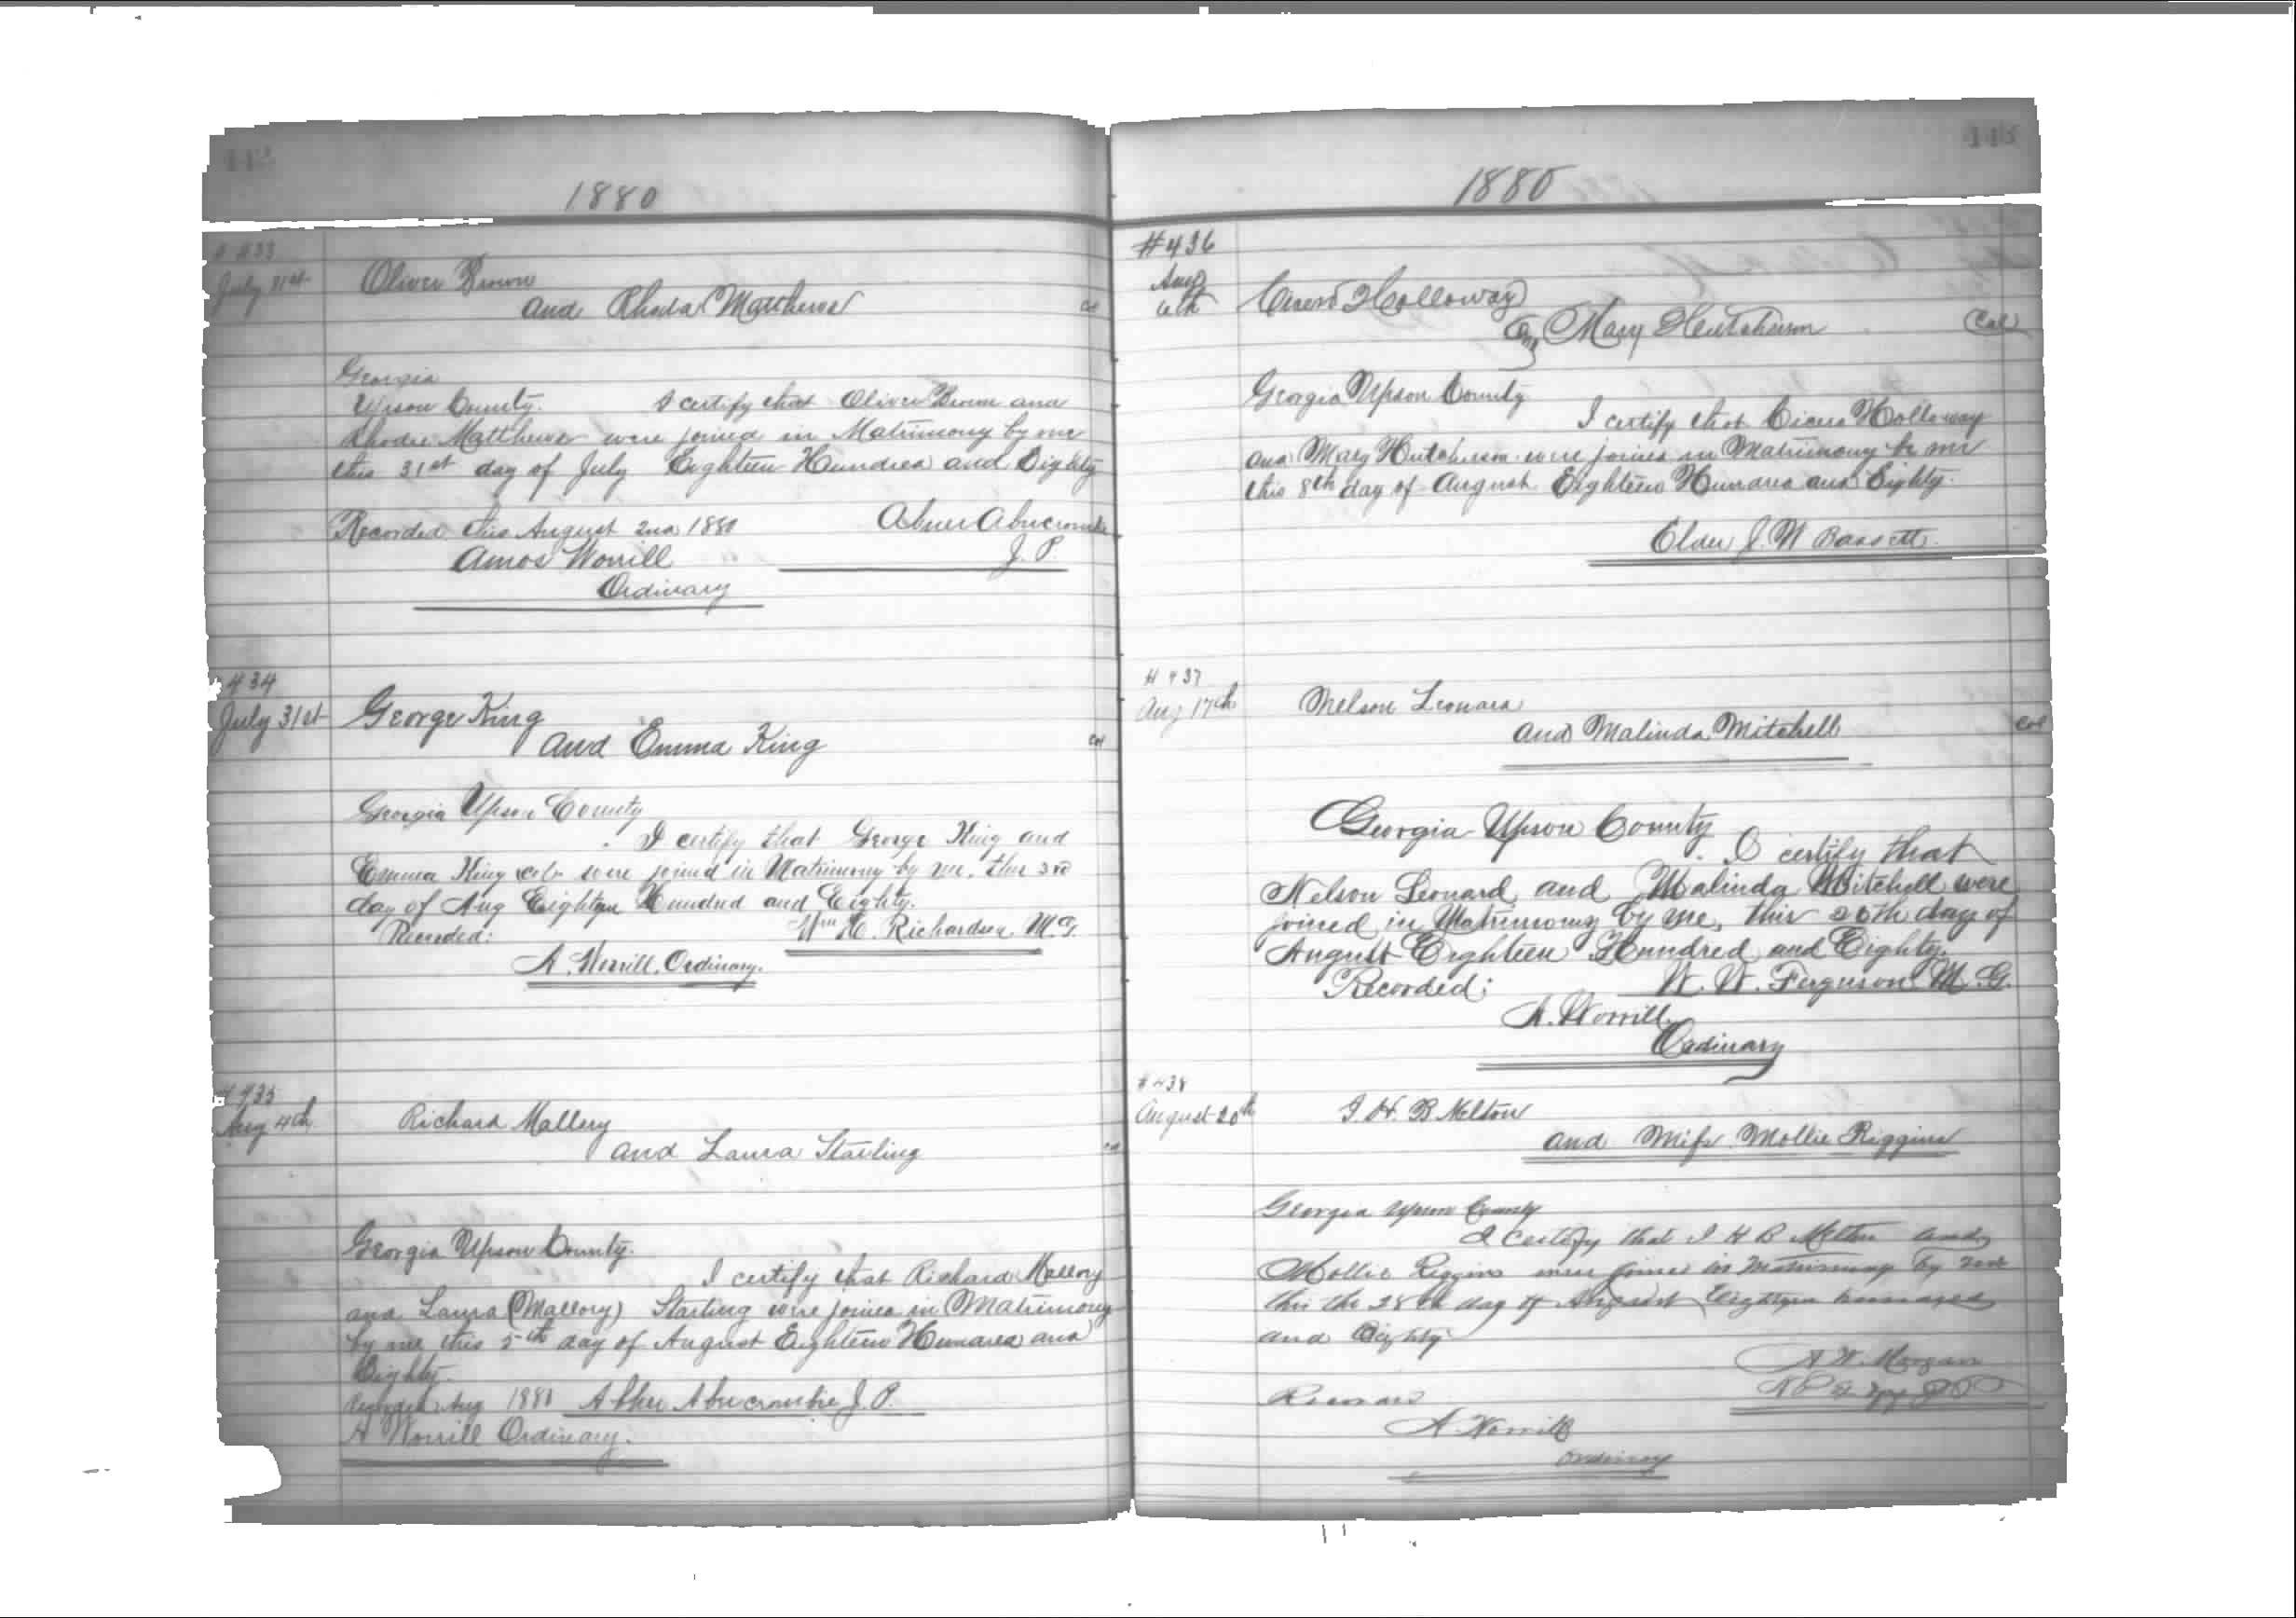 1880
# 433
July 31st
Oliver Brown
and Rhoda Matthews
Col
Georgia
Upson County. I certify that Oliver Brown and
Rhoda Matthews were joined in Matrimony by me
this 31st day of July Eighteen Hundred and Eighty
Recorded this August 2nd 1880 Abner Abercrombie
Amos Worrill J. P.
Ordinary
434
July 31st
George King
and Emma King
Col
Georgia Upson County
I certify that George King and
Emma King col. were joined in Matrimony by me, this 3rd
day of Aug Eighteen Hundred and Eighty.
Recorded: Wm H. Richardson M.G.
A. Worrill, Ordinary.
# 435
Aug 4th
Richard Mallory
and Laura Starling
Col
Georgia Upson County.
I certify that Richard Mallory
and Laura (Mallory) Starling were joined in Matrimony
by me this 5th day of August Eighteen Hundred and
Eighty.
Recorded Aug 1880 Abner Abercrombie J. P.
A Worrill Ordinary.
1880
#436
Aug
6th
Cicero Holloway
and Mary Hutcherson
Col
Georgia Upson County
I certify that Cicero Holloway
and Mary Hutcherson were joined in Matrimony by me
this 8th day of August Eighteen Hundred and Eighty.
Elder J. W Bassett.
# 437
Aug 17th
Nelson Leonard
and Malinda Mitchell
Col
Georgia Upson County
I certify that
Nelson Leonard and Malinda Mitchell were
joined in Matrimony by me, this 20th day of
August Eighteen Hundred and Eighty.
Recorded: W. W. Ferguson M.G.
A. Worrill
Ordinary
# 438
August 20th
J. H. B Melton
and Miss Mollie Riggins
Georgia Upson County
I certify that J H B Melton and
Mollie Riggins were joined in Matrimony by me
this the 28th day of August Eighteen hundred
and Eighty
A. W. Morgan
Recorded
A. Worrill
Ordinary